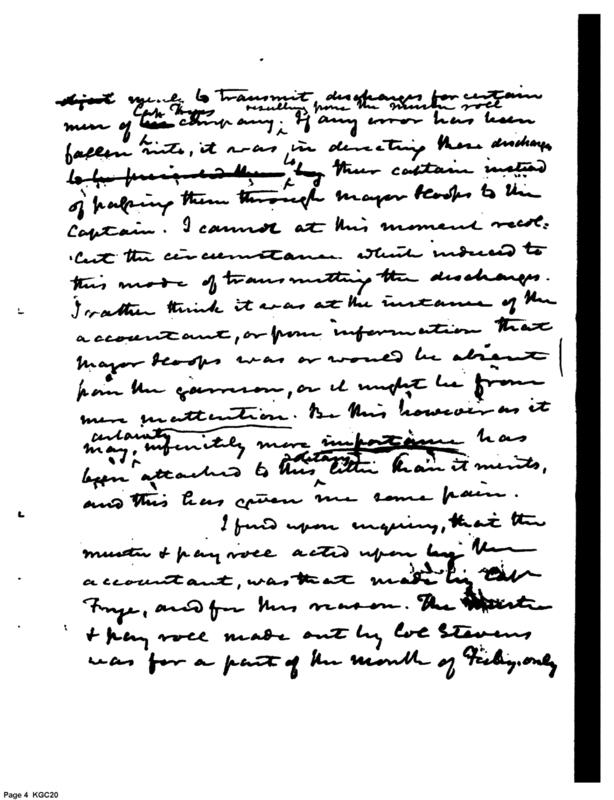 merely to transmit discharges for certain
Capt Fryes resulting from the muster roll
men of his company. If any error has been
fallen into, it was in directing these discharges
to be presented them by to their captain instead
of passing them through major Hoops to the
Captain. I cannot at this moment recol-
-lect the circumstance which induced to
this mode of transmitting the discharges.
I rather think it was at the instance of the
accountant, or from information that
major Hoops was or would be absent
from the garrison, or it might be from
mere inattention. Be this however as it
certainly
may, infinitely more importance has
been attached to this letter than it merits,
and this has given me some pain.
I find upon enquiry, that the
muster & pay roll acted upon by the
accountant, was that made by Capt
Frye, and for this reason. The Muster
& pay roll made out by Col Stevens
was for a part of the month of Feby. only
Page 4 KGC20